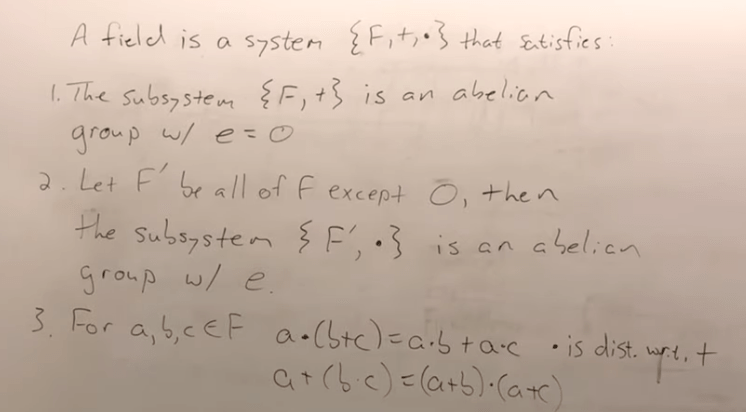 A field is a system {F,+,•} that satisfies:
1. The subsystem {F,+} is an abelian
group w/ e = 0
2. Let F' be all of F except 0, then
the subsystem {F',•} is an abelian
group w/ e.
3. For a,b,c∈F a•(b+c)=a•b+a•c • is dist. w.r.t. +
a+(b•c)=(a+b)•(a+c)